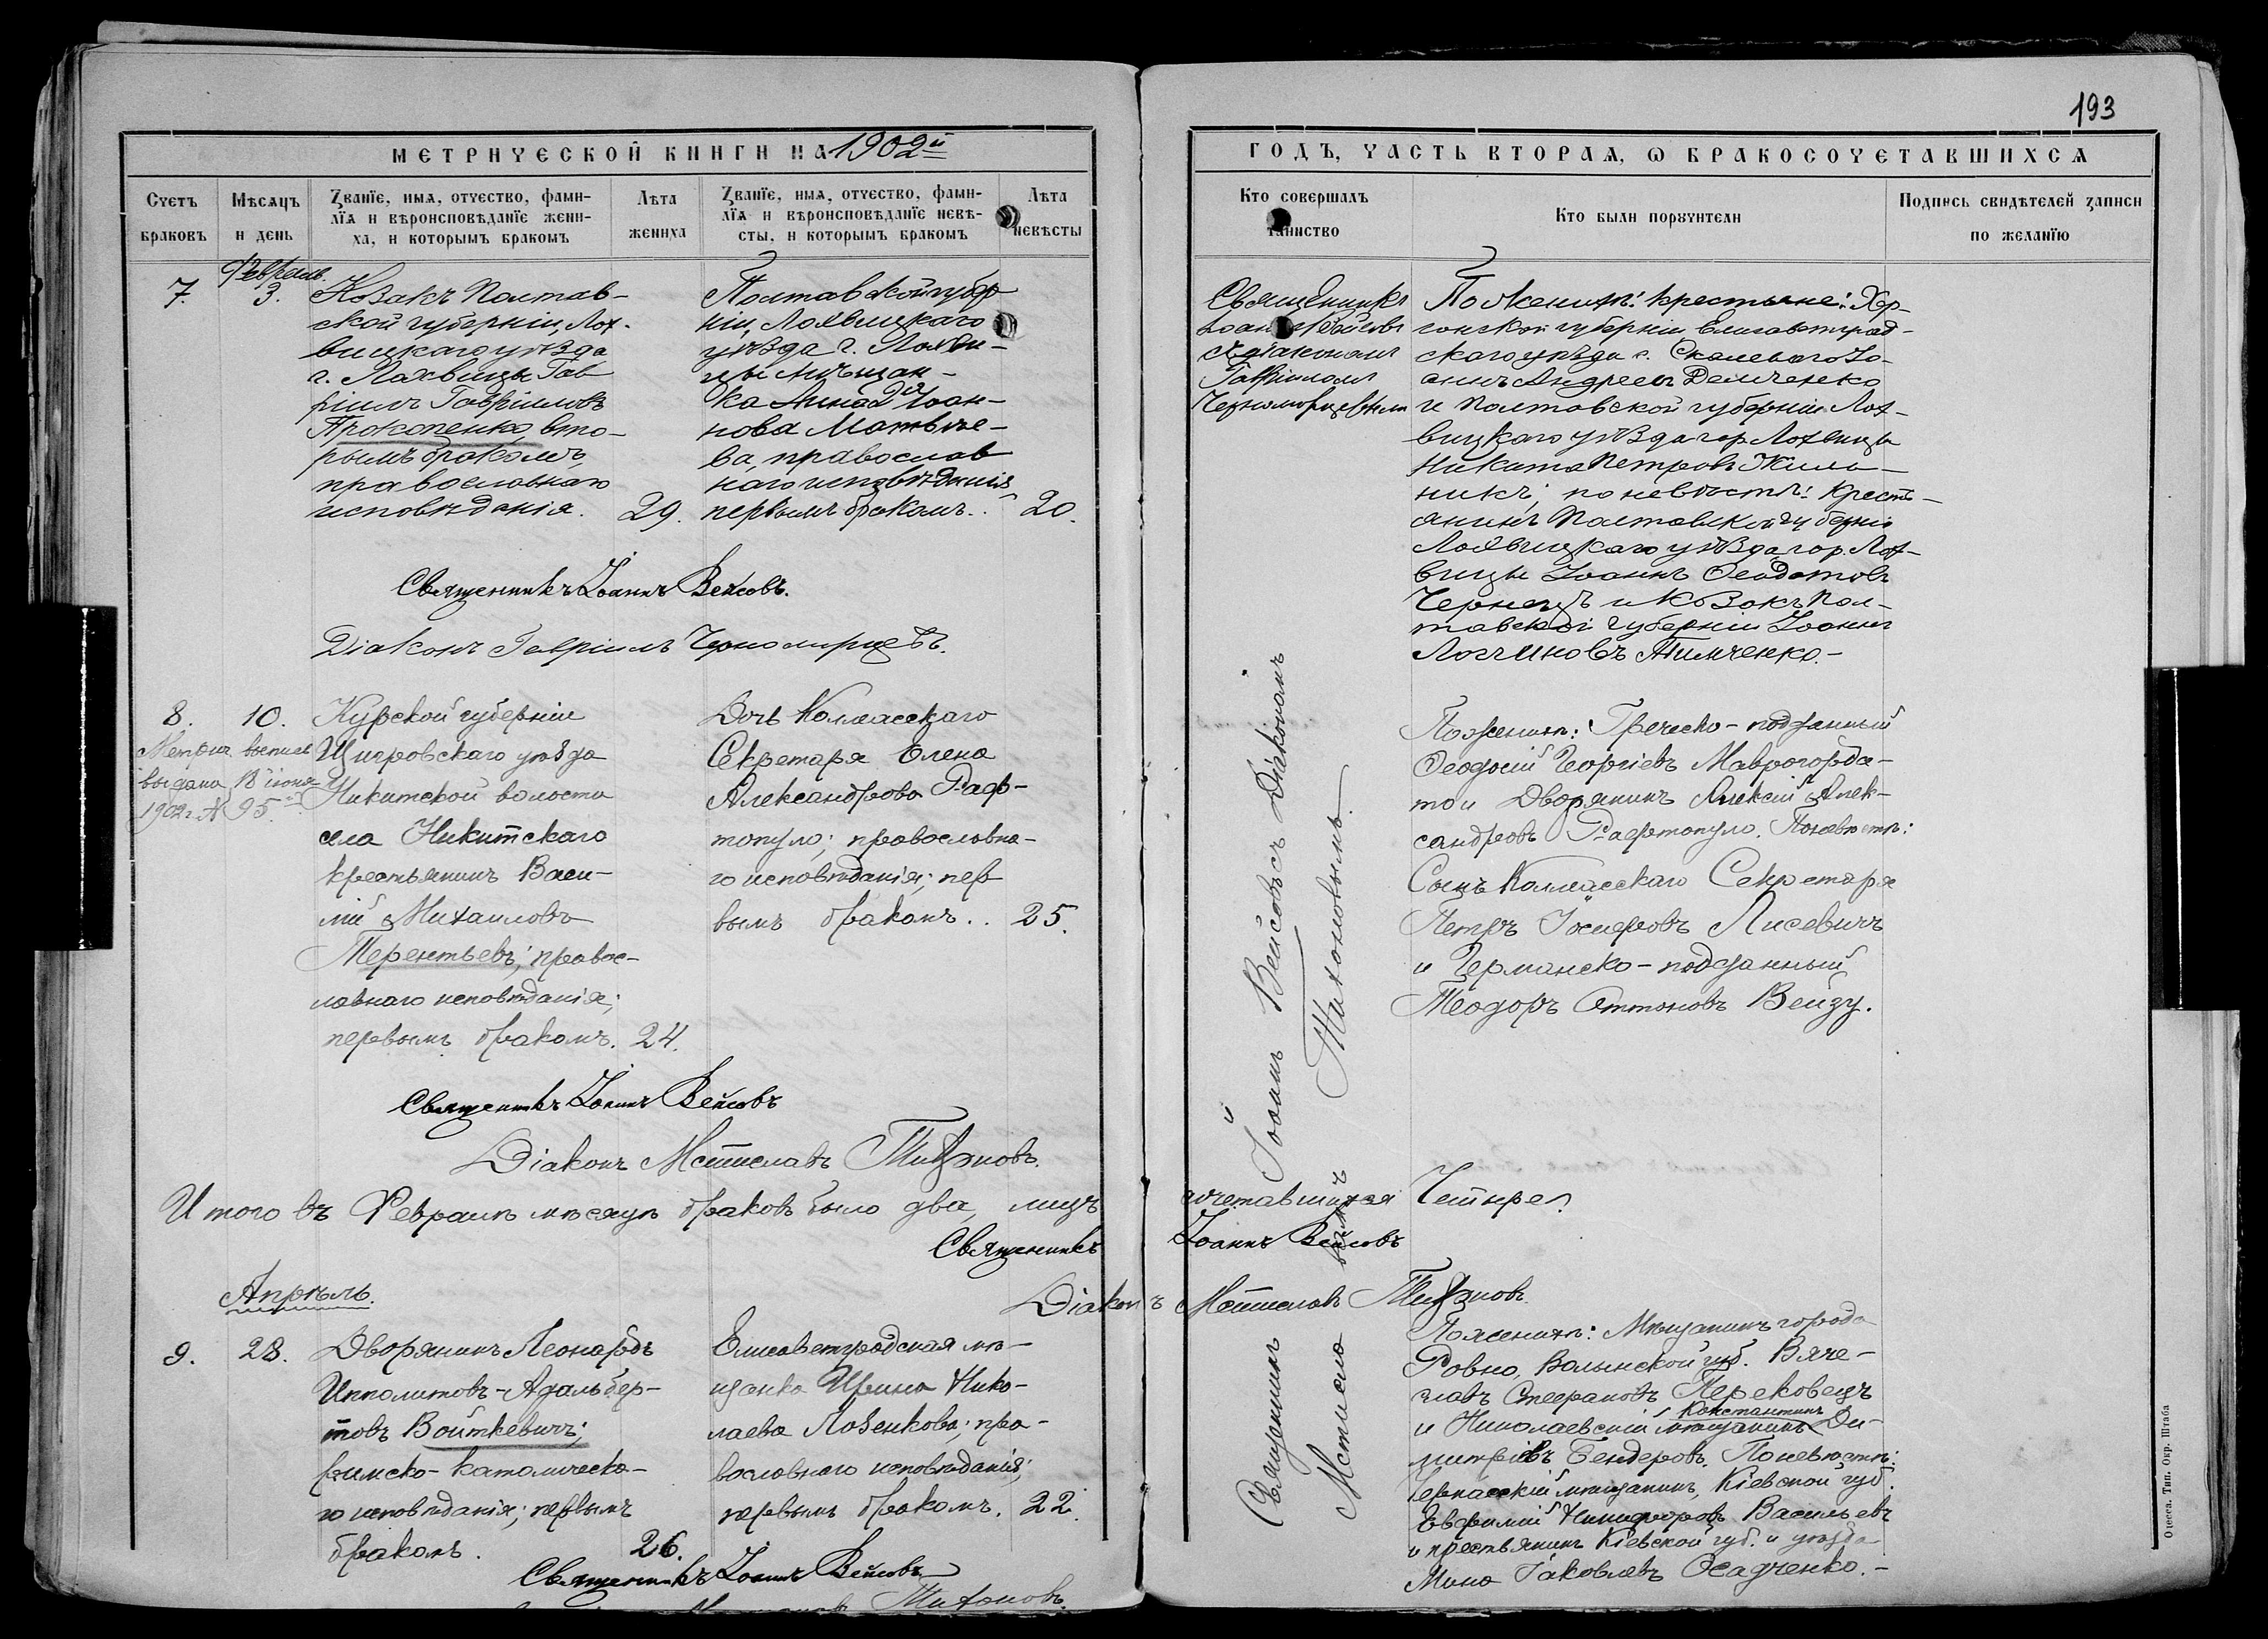 193
МЕТРИЧЕСКОЙ КНИГИ НА 1902й
ГОДЪ, ЧАСТЬ ВТОРАЯ, Ѡ БРАКОСОЧЕТАВШИХСЯ
Счетъ браковъ
Мѣсяцъ и день
Званїе, имя, отчество, фами-
лїя и вѣроисповѣданїе жени-
ха, и которымъ бракомъ
Лѣта жениха
Званїе, имя, отчество, фами-
лїя и вѣроисповѣданїе невѣ-
сты, и которымъ бракомъ
Лѣта невѣсты
Кто совершалъ таинство
Кто были поручители
Подпись свидѣтелей записи
по желанїю
7.
Февраль.
3.
Козакъ Полтав-
ской губерніи, Лох-
вицкаго уѣзда,
г. Лохвицы Гав
ріилъ Гавріиловъ
Прокопенко, вто-
рымъ бракомъ,
православнаго
исповѣданія.
29.
Полтавской губер
ніи, Лохвицкаго
уѣзда г. Лохви-
цы мѣщан-
ка Анна Іоан-
нова Матвѣе-
ва, православ
наго исповѣданія,
первымъ бракомъ..
20.
Священникъ
Іоаннъ Вейсовъ
съ діакономъ
Гавріиломъ
Черноморцевымъ
По женихѣ: крестьяне: Хер-
сонской губерніи Елисаветград-
скаго уѣзда с. Скалеваго Іо-
аннъ Андреевъ Демченко
и Полтавской губерніи Лох-
вицкаго уѣзда гор. Лохвицы
Никита Петровъ Жиль-
никъ; по невѣстѣ: Кресть-
янинъ Полтавской губерніи
Лохвицкаго уѣзда гор. Лох-
вицы Іоаннъ Феодотовъ
Чернецъ и козакъ Пол-
тавской губерніи Іоаннъ
Логгиновъ Тимченко.-
Священникъ Іоаннъ Вейсовъ.
Діаконъ Гавріилъ Черноморцевъ.
8.
10.
Метрич. выпись
выдана 18 іюня
1902 г. № 95.
Курской губерніи
Щигровскаго уѣзда
Никитской волости
села Никитскаго
крестьянинъ Васи-
лій Михаиловъ
Терентьевъ; правос-
лавнаго исповѣданія;
первымъ бракомъ.
24.
Дочь Коллежскаго
Секретаря Елена
Александрова Раф-
топуло; православна-
го исповѣданія; пер
вымъ бракомъ..
25.
Священникъ Іоаннъ Вейсовъ съ Діакономъ
Мстиславомъ Тихоновымъ.
По женихѣ: Греческо-подданный
Феодосій Георгіевъ Маврогорда-
то и Дворянинъ Алексій Алек-
сандровъ Рафтопуло. По невѣстѣ:
Сынъ Коллежскаго Секретаря
Петръ Іосифовъ Лисевичъ
и Германско-подданный
Теодоръ Оттоновъ Вейзу.
Священникъ Іоаннъ Вейсовъ
Діаконъ Мстиславъ Тихоновъ.
Итого въ Февралѣ мѣсяцѣ браковъ было два, лицъ сочетавшихся Четыре.
Священникъ Іоаннъ Вейсовъ
Діаконъ Мстиславъ Тихоновъ.
Апрѣль.
9.
28.
Дворянинъ Леонардъ
Ипполитовъ-Адальбер-
товъ Войткевичъ;
римско-католическа-
го исповѣданія; первымъ
бракомъ.
26.
Елисаветградская мѣ-
щанка Ирина Нико-
лаева Лозенкова; пра-
вославнаго исповѣданія;
первымъ бракомъ.
22.
По женихѣ: Мѣщанинъ города
Ровно, Волынской губ. Вяче-
славъ Стефановъ Перековецъ
и Николаевскій мѣщанинъ Константинъ Ди-
митріевъ Бендеровъ. По невѣстѣ:
Черкасскій мѣщанинъ, Кіевской губ.
Евфимій Никифоровъ Васильевъ
и крестьянинъ Кіевской губ. и уѣзда
Мина Іаковлевъ Осадченко.-
Священникъ Іоаннъ Вейсовъ
Тихоновъ.
Одесса. Тип. Окр. Штаба